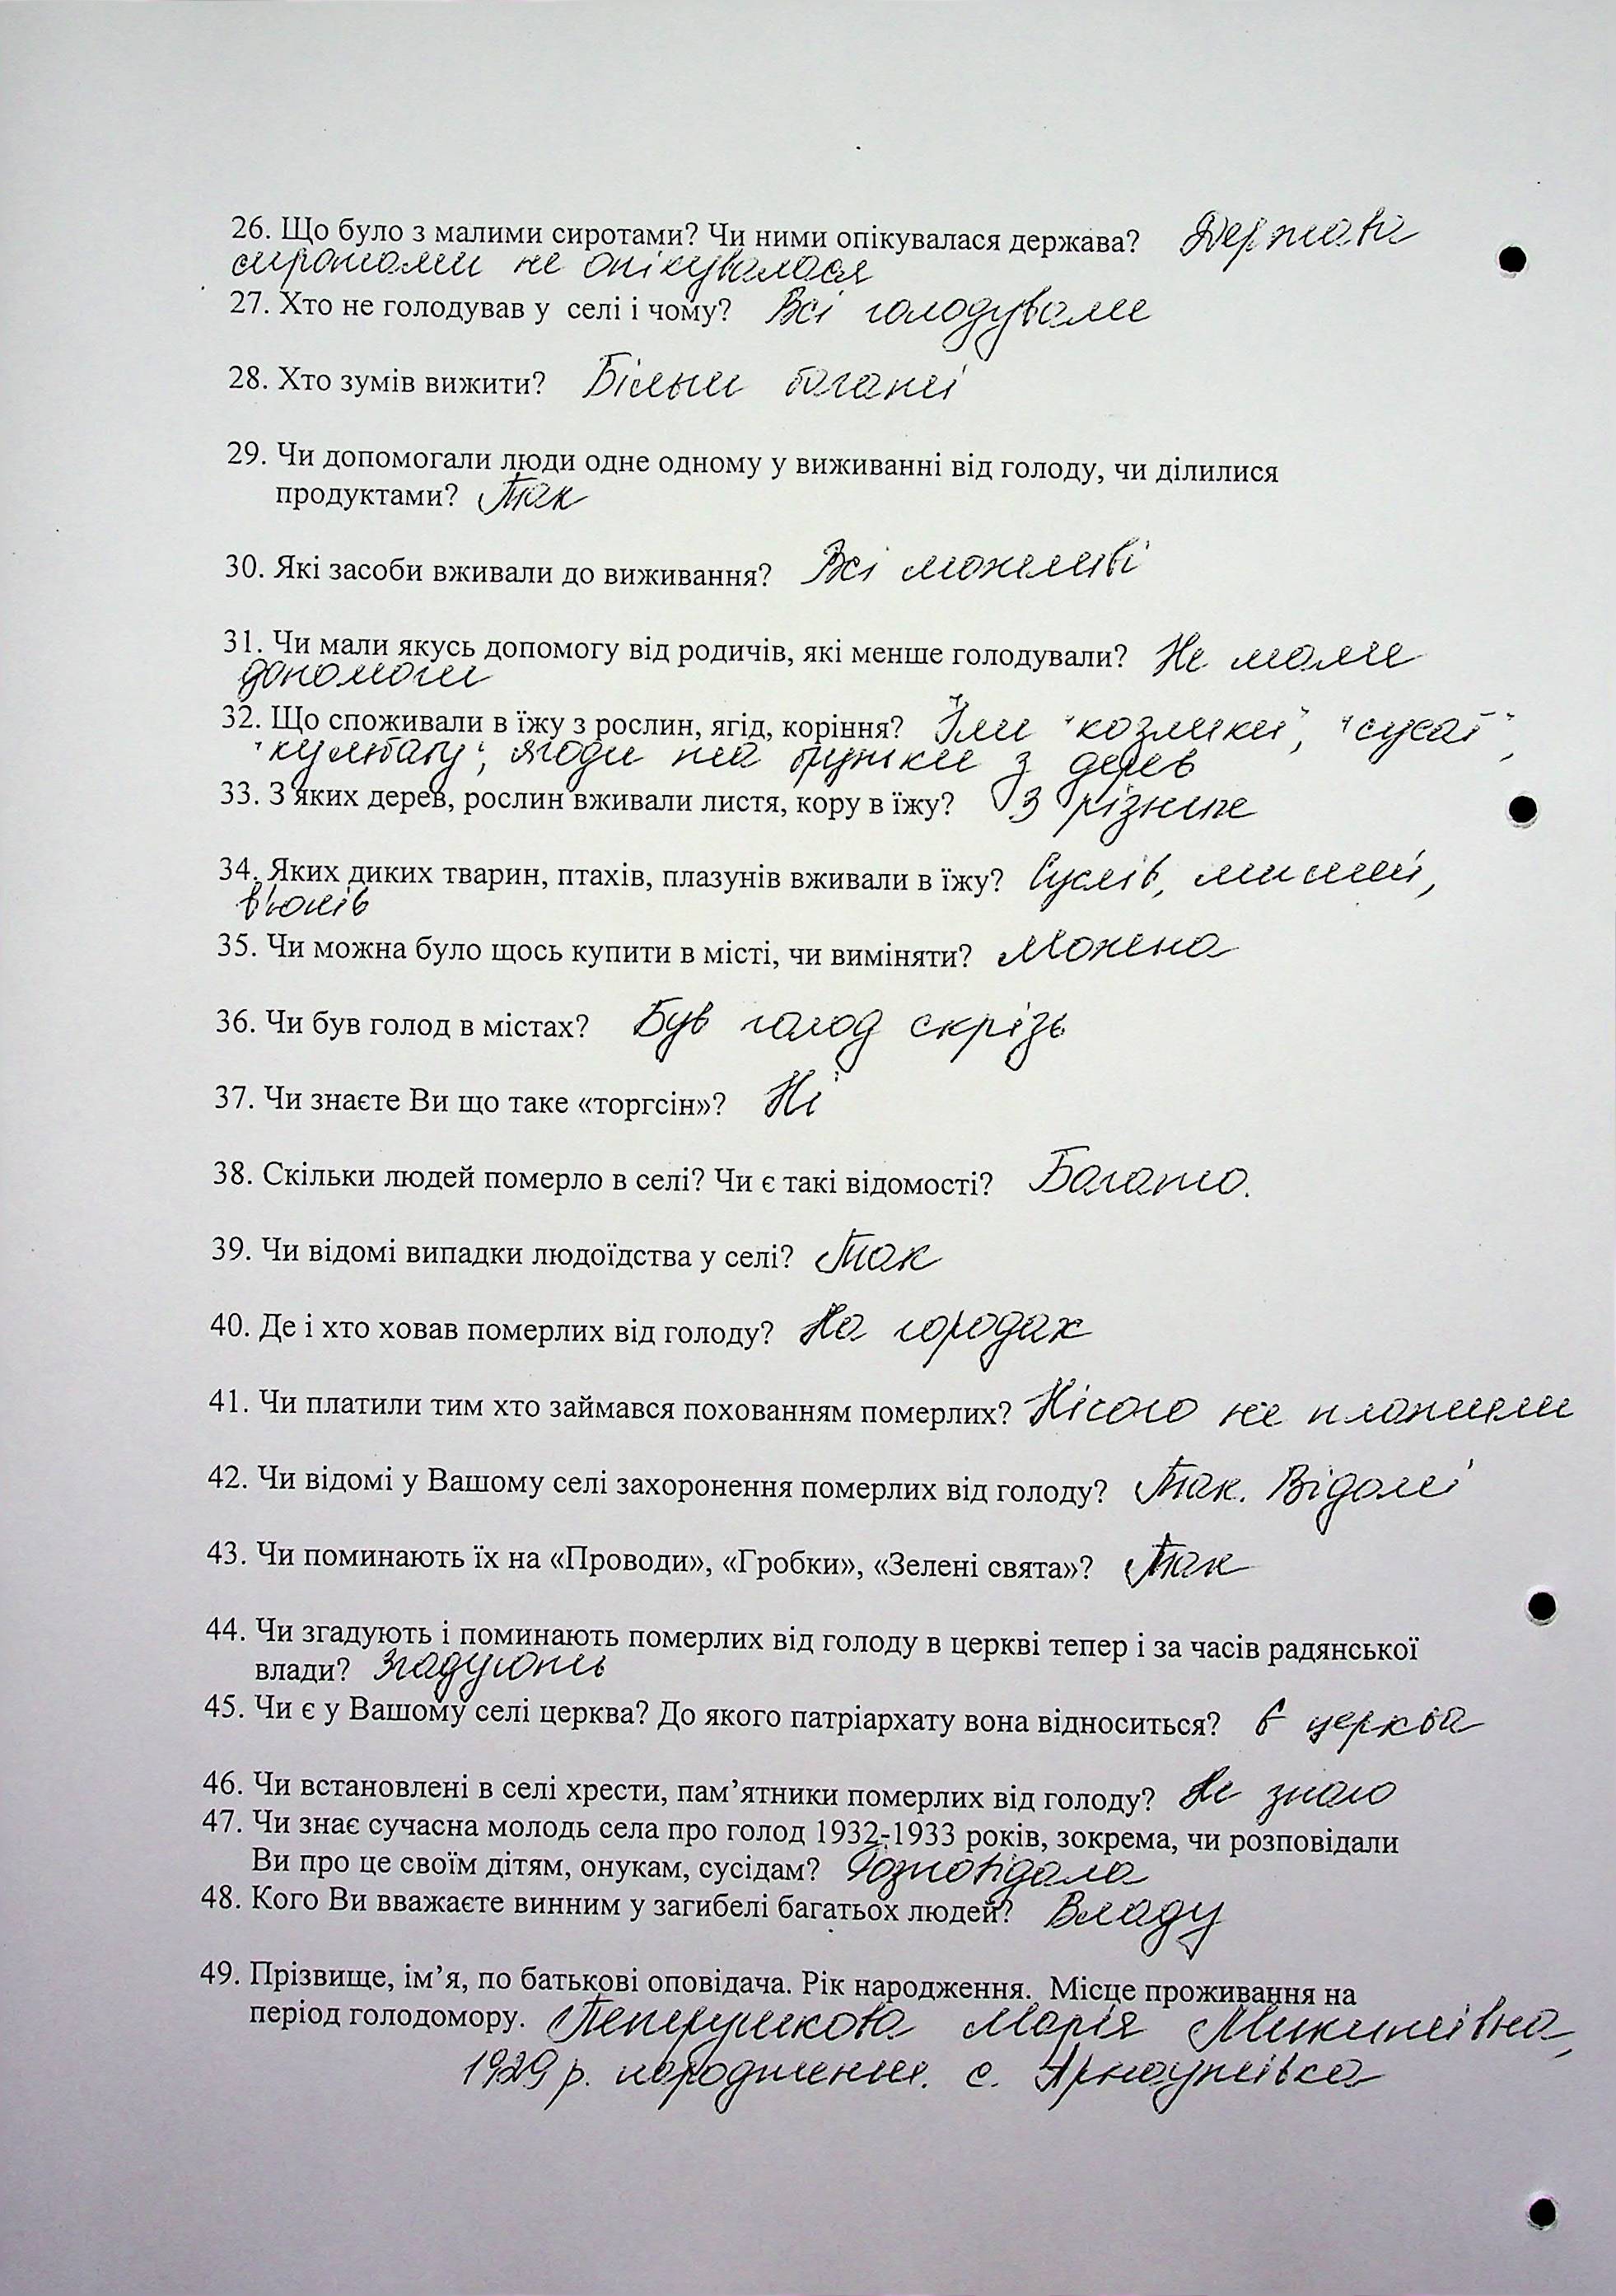 26. Що було з малими сиротами? Чи ними опікувалася держава? Держава
сиротами не опікувалася
27. Хто не голодував у селі і чому? Всі голодували
28. Хто зумів вижити? Більш багаті
29. Чи допомогали люди одне одному у виживанні від голоду, чи ділилися
продуктами? Так
30. Які засоби вживали до виживання? Всі можливі
31. Чи мали якусь допомогу від родичів, які менше голодували? Не мали
допомоги
32. Що споживали в їжу з рослин, ягід, коріння? Їли "козлики", "сусаї",
"кульбабу", ягоди та бруньки з дерев
33. З яких дерев, рослин вживали листя, кору в їжу? З різних
34. Яких диких тварин, птахів, плазунів вживали в їжу? Суслів, мишей,
в'юнів
35. Чи можна було щось купити в місті, чи виміняти? Можна
36. Чи був голод в містах? Був голод скрізь
37. Чи знаєте Ви що таке «торгсін»? Ні
38. Скільки людей померло в селі? Чи є такі відомості? Багато.
39. Чи відомі випадки людоїдства у селі? Так
40. Де і хто ховав померлих від голоду? На городах
41. Чи платили тим хто займався похованням померлих? Нікого не платили
42. Чи відомі у Вашому селі захоронення померлих від голоду? Так. Відомі
43. Чи поминають їх на «Проводи», «Гробки», «Зелені свята»? Так
44. Чи згадують і поминають померлих від голоду в церкві тепер і за часів радянської
влади? Згадують
45. Чи є у Вашому селі церква? До якого патріархату вона відноситься? Є церква
46. Чи встановлені в селі хрести, пам’ятники померлих від голоду? Не знаю
47. Чи знає сучасна молодь села про голод 1932-1933 років, зокрема, чи розповідали
Ви про це своїм дітям, онукам, сусідам? Розповідала
48. Кого Ви вважаєте винним у загибелі багатьох людей? Владу
49. Прізвище, ім’я, по батькові оповідача. Рік народження. Місце проживання на
період голодомору. Марія Микитівна,
1929 р. народження. с. Арнаутівка